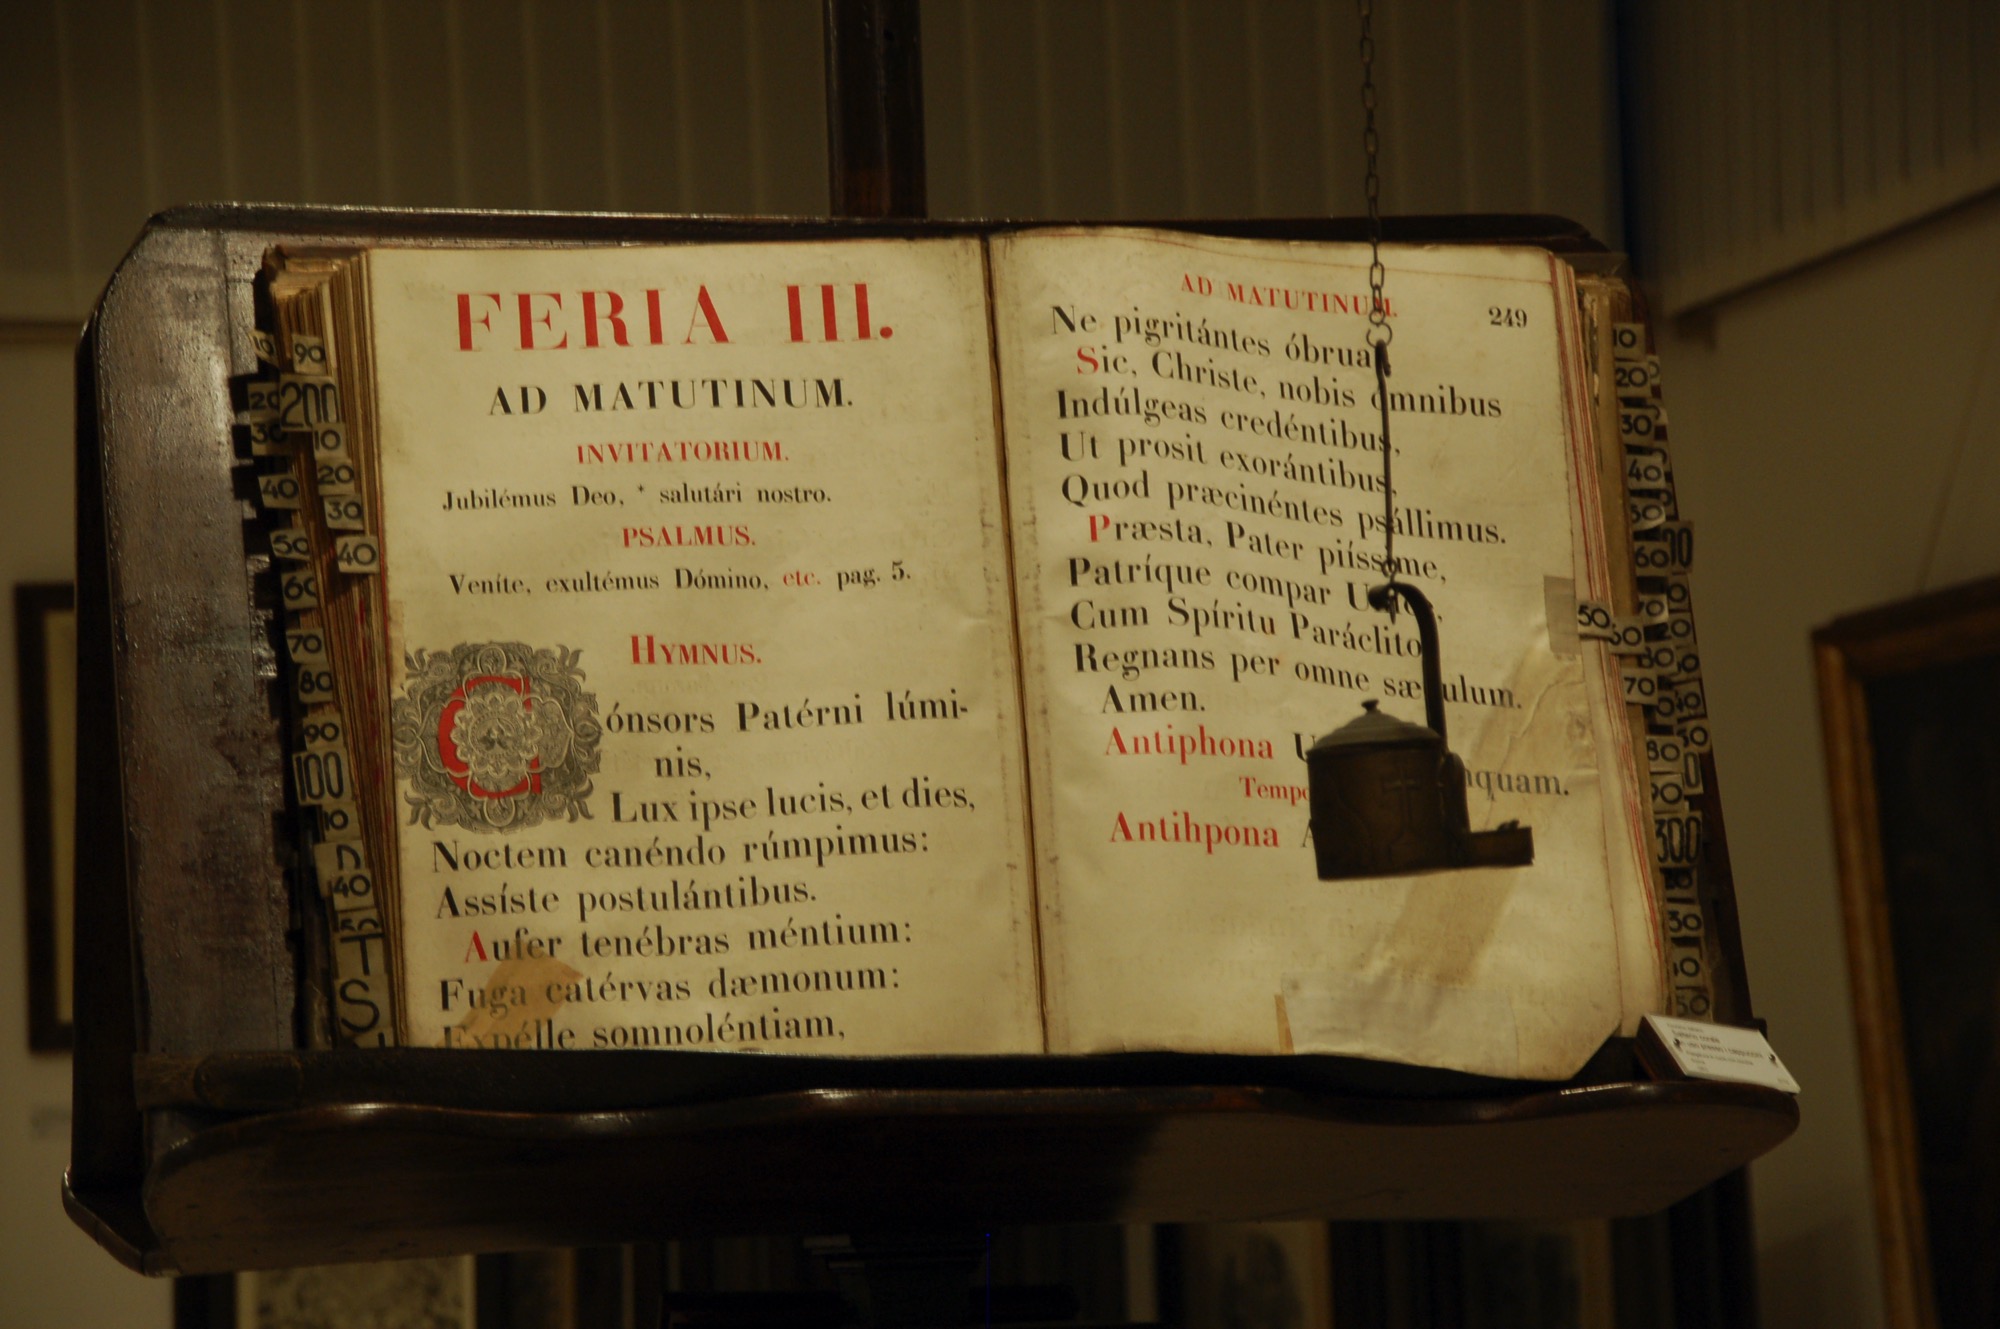 FERIA III.
AD MATUTINUM.
INVITATORIUM.
Jubilémus Deo, * salutári nostro.
PSALMUS.
Veníte, exultémus Dómino, etc. pag. 5.
HYMNUS.
Cónsors Patérni lúmi-
nis,
Lux ipse lucis, et dies,
Noctem canéndo rúmpimus:
Assíste postulántibus.
Aufer tenébras méntium:
Fuga catérvas dæmonum:
Expélle somnoléntiam,
AD MATUTINUM.
249
Ne pigritántes óbrua
Sic, Christe, nobis ómnibus
Indúlgeas credéntibus,
Ut prosit exorántibus,
Quod præcinéntes psállimus.
Præsta, Pater piíssime,
Patríque compar
Cum Spíritu Paráclito
Regnans per omne sæculum.
Amen.
Antiphona
Antihpona
90
200
10
20
30
40
20
30
40
50
60
70
80
90
100
10
40
T
S
10
20
30
40
50
60
50
60
70
80
90
300
30
50